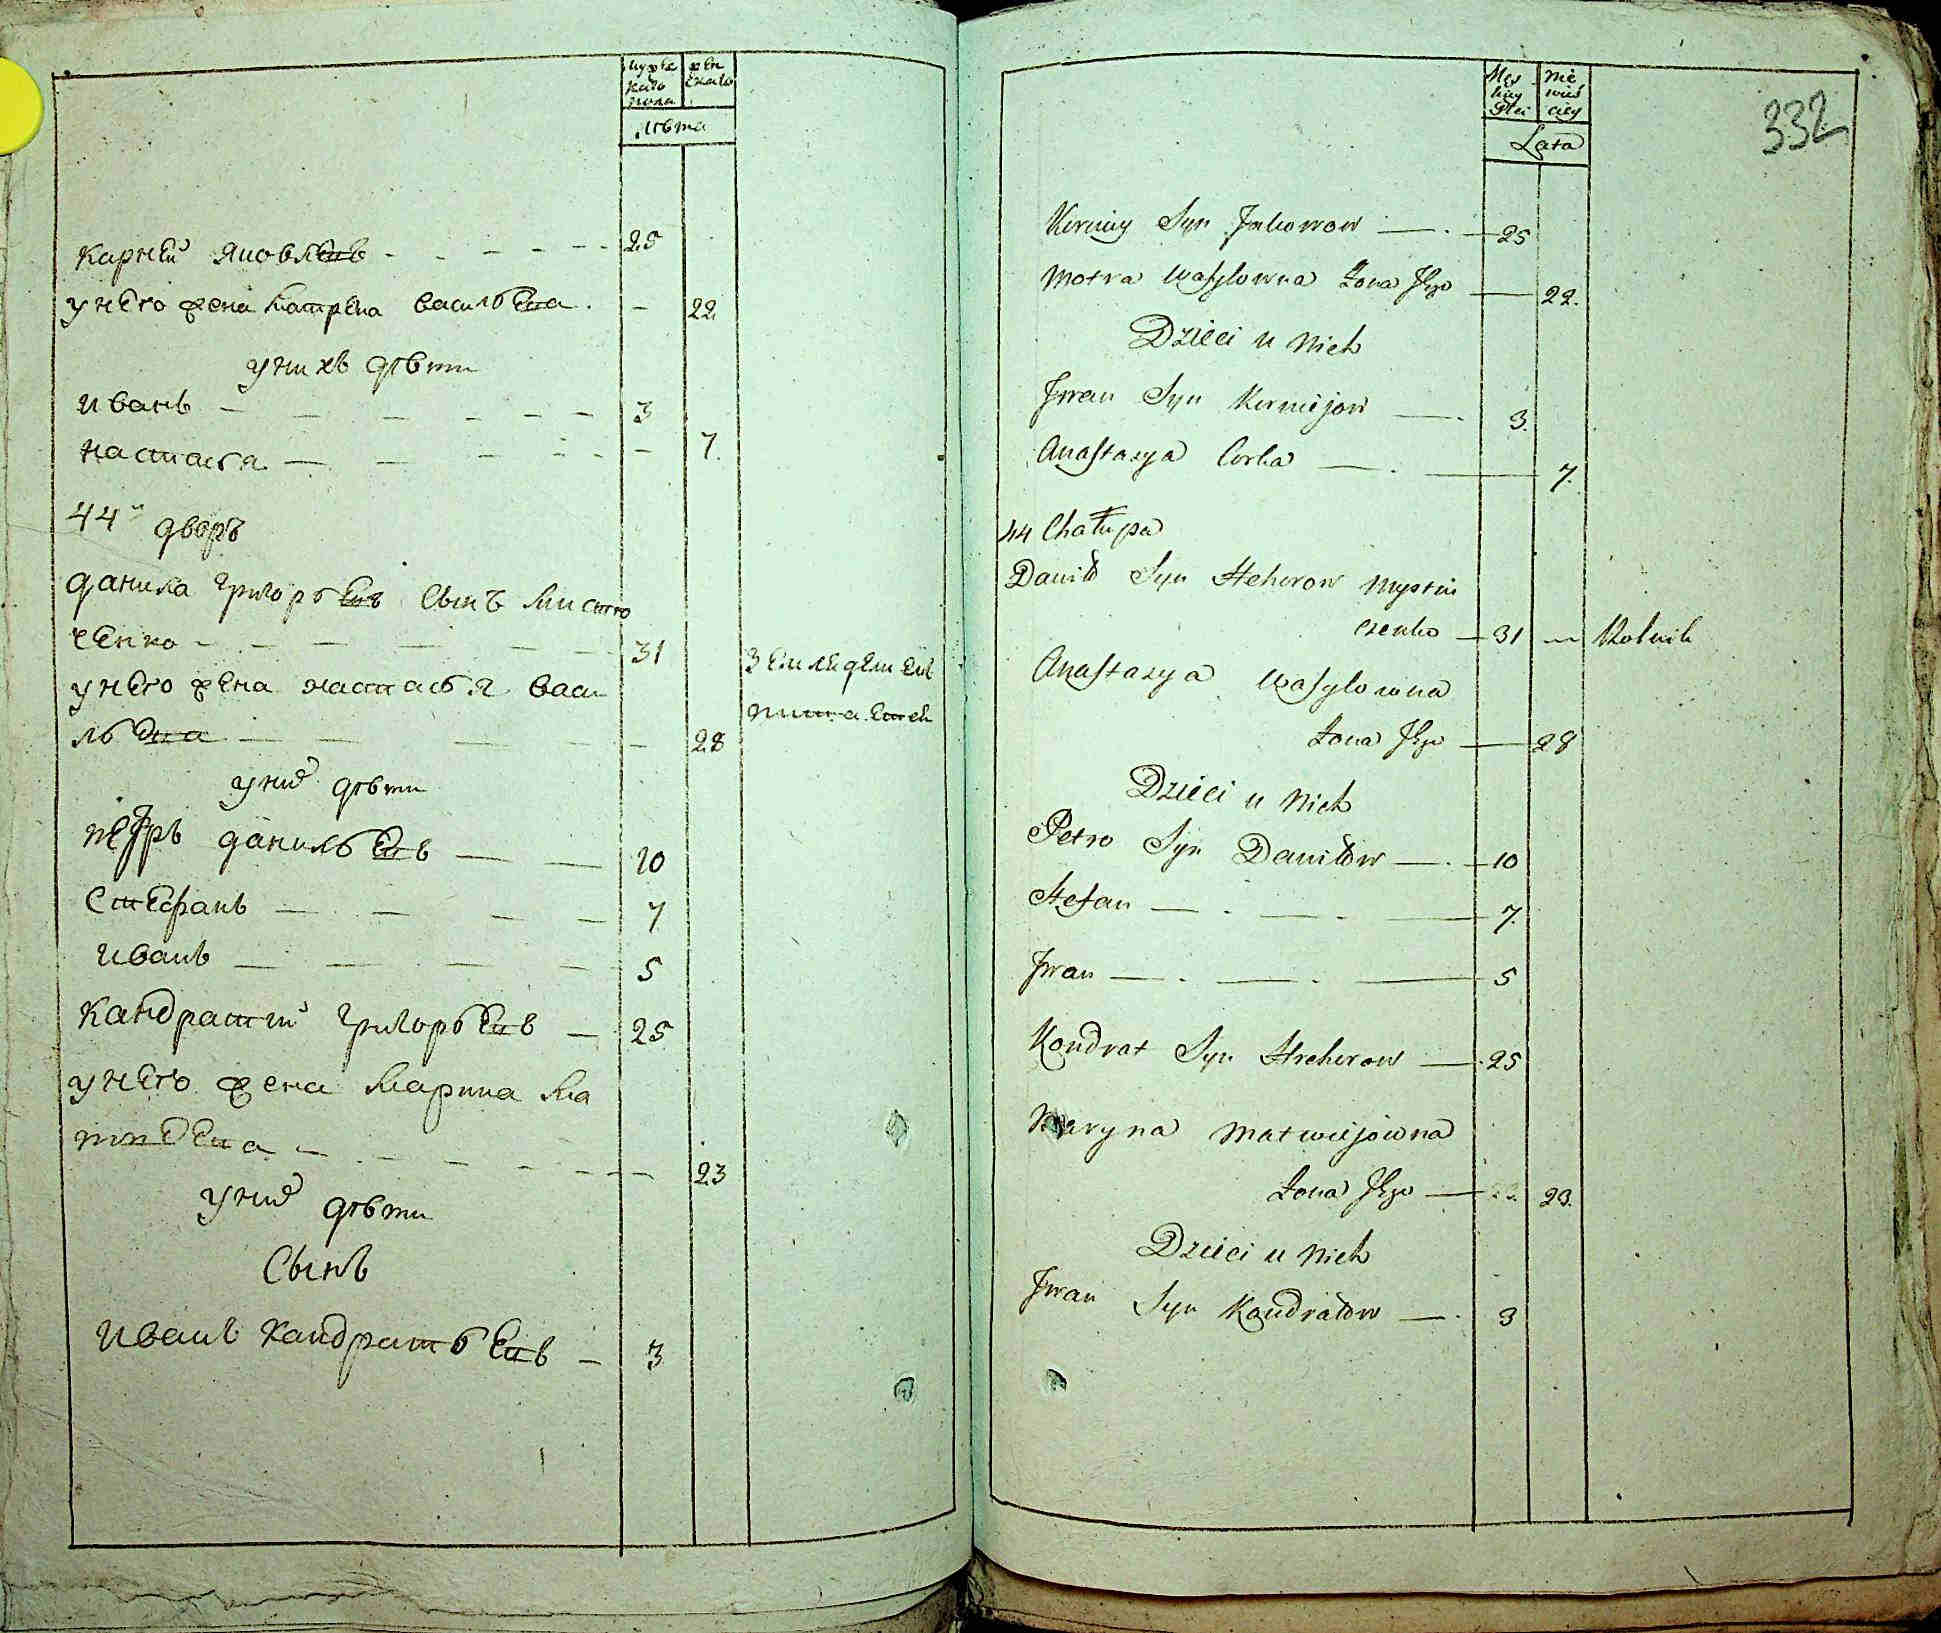 мужеска пола
женска
лѣта
карнѣй яковлевъ 25
у него жена матрена васильева 22
у нихъ дѣти
иванъ 3
настасья 7.
44й дворъ
данила григорьевъ сынъ мисти
ченко 31
земледелием
питается
у него жена настасья васи
льева 28
у них дѣти
петръ данильевъ 10
стефанъ 7
иванъ 5
кандратий григорьевъ 25
у него жена марина ма
тфеева 23
у них дѣти
сынъ
иванъ кандратьевъ 3
332
Męs
kiey
płci
nie
wieś
ciey
Lata
Kerniey Syn Jakowow 25
Motra Wasylowna Żona Jego 22.
Dzieci u nich
Jwan Syn Kerniejow 3.
Anastazya Corka 7.
44 Chałupa
Daniło Syn Hehorow Mysti
czenko 31 Rolnik
Anastazya Wasylowna
Żona Jego 28
Dzieci u nich
Petro Syn Daniłow 10
Stefan 7.
Jwan 5
Kondrat Syn Hrehorow 25
Maryna Matwiejowna
Żona Jego 23.
Dzieci u nich
Jwan Syn Kondratow 3